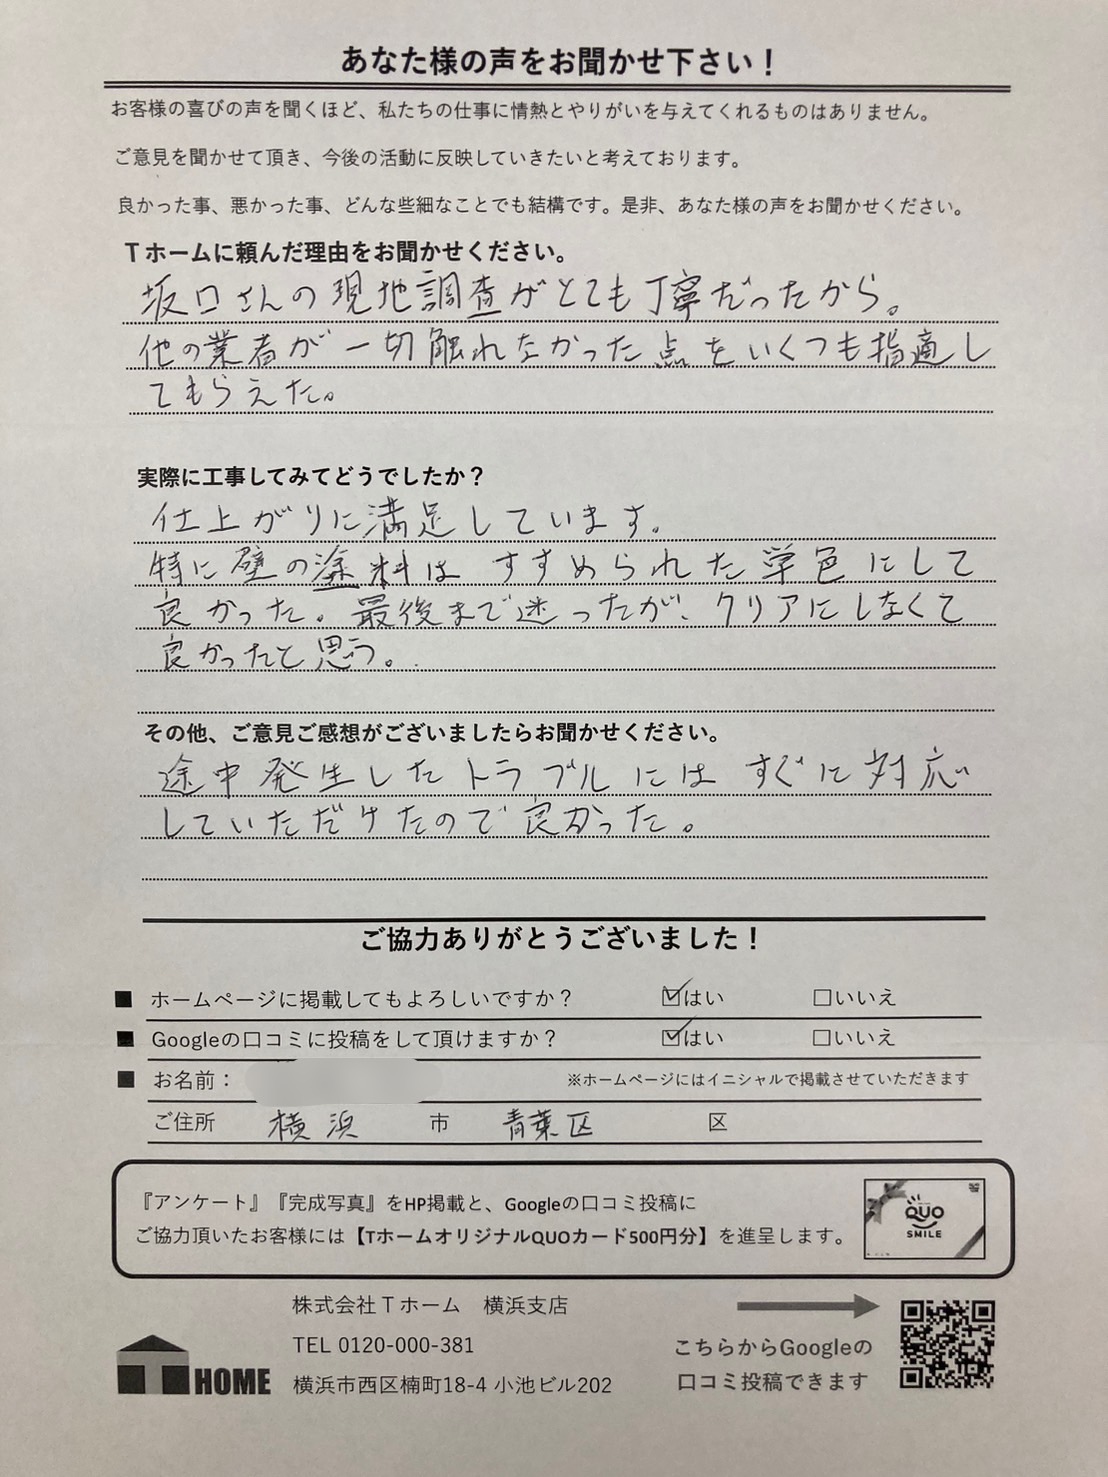 あなた様の声をお聞かせ下さい！
お客様の喜びの声を聞くほど、私たちの仕事に情熱とやりがいを与えてくれるものはありません。
ご意見を聞かせて頂き、今後の活動に反映していきたいと考えております。
良かった事、悪かった事、どんな些細なことでも結構です。是非、あなた様の声をお聞かせください。
Tホームに頼んだ理由をお聞かせください。
坂口さんの現地調査がとても丁寧だったから。
他の業者が一切触れなかった点をいくつも指適し
てもらえた。
実際に工事してみてどうでしたか？
仕上がりに満足しています。
特に壁の塗料はすすめられた単色にして
良かった。最後まで迷ったが、クリアにしなくて
良かったと思う。
その他、ご意見ご感想がございましたらお聞かせください。
途中発生したトラブルにはすぐに対応
していただけたので良かった。
ご協力ありがとうございました！
■ ホームページに掲載してもよろしいですか？ ☑はい □いいえ
■ Googleの口コミに投稿をして頂けますか？ ☑はい □いいえ
■ お名前： ※ホームページにはイニシャルで掲載させていただきます
ご住所 横浜 市 青葉区 区
『アンケート』『完成写真』をHP掲載と、Googleの口コミ投稿に
ご協力頂いたお客様には【TホームオリジナルQUOカード500円分】を進呈します。
QUO
SMILE
株式会社Tホーム 横浜支店
TEL 0120-000-381
横浜市西区楠町18-4 小池ビル202
T HOME
こちらからGoogleの
口コミ投稿できます